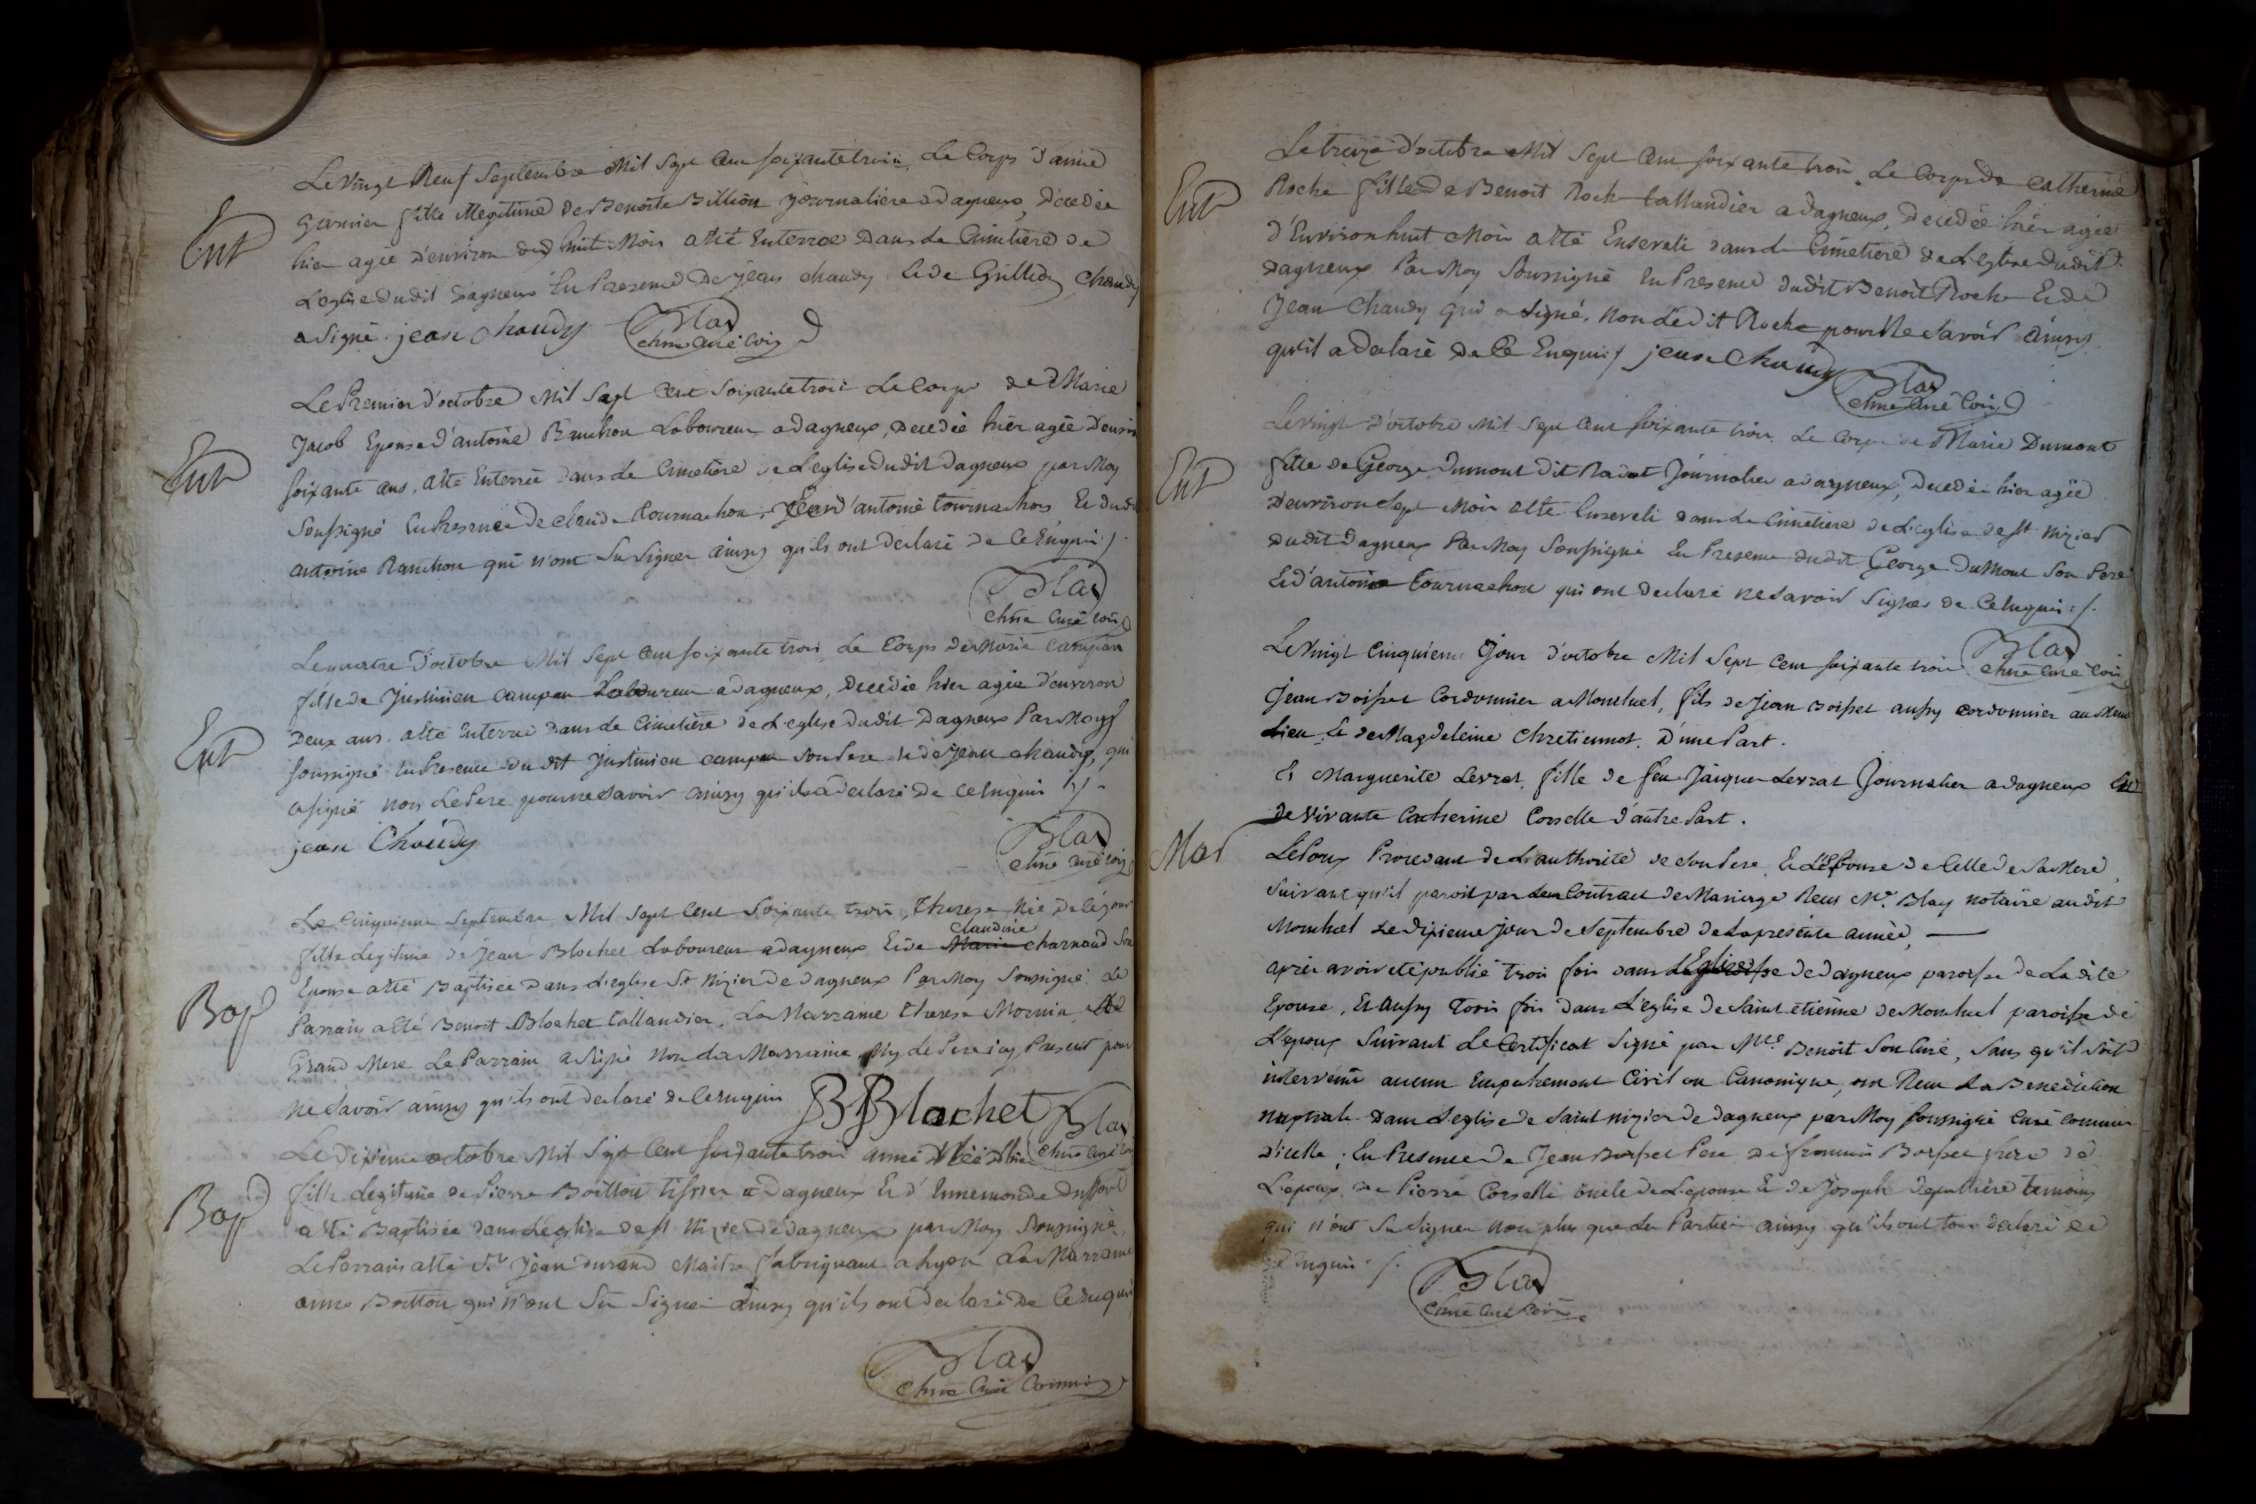 Ent
Le vingt Neuf Septembre Mil Sept Cent soixante trois Le Corps d'anne
Garnier fille illegitime de Benoite Billion journaliere a dagneux, decedée
hier agée d'environ dix huit Mois a été Enterrée Dans Le Cimetiere de
L'eglise dudit dagneux En Presence De jean chaudy et de Chaudy
a signé. jean chaudy Blad
chne curé com
Ent
Le Premier d'octobre Mil Sept Cent Soixante trois Le Corps de Marie
Jacob Epouse d'antoine Ranchon Laboureur a dagneux, Decedée hier agée d'environ
soixante ans, a été Enterrée dans Le Cimetiere de L'eglise dudit dagneux par Moy
Soussigné En Presence de claude tournachon, d'antoine tournachon Et dudit
antoine Ranchon qui n'ont Su Signer ainsy qu'ils ont declaré de Ce Enquis /.
Blad
chne curé com
Ent
Le quatre d'octobre Mil Sept Cent soixante trois Le Corps de Marie campan
fille de Justinien campan Laboureur a dagneux, Decedée hier agée d'environ
Deux ans a été Enterrée dans Le Cimetiere de L'eglise dudit Dagneux Par Moy
soussigné En Presence du dit Justinien campan Son Pere et de Jean chaudy, qui
a signé non Le Pere pour ne Savoir ainsy qu'il a declaré de ce Enquis /.
jean Chaudy
Blad
chne curé com
Bap
Le Cinquieme Septembre Mil Sept Cent Soixante trois, Therese Née De Ce jour
claudine
fille Legitime de jean Blochet Laboureur a dagneux Et de Marie charnaud Son
Epouse a été Baptisée Dans L'eglise St Nizier De dagneux Par Moy Soussigné Le
Parrain a été Benoit Blochet taillandier, La Marraine Therese Mornin, Sa
Grand Mere Le Parrain a Signé Non La Marraine Ny Le Pere icy Present pour
ne Savoir ainsy qu'ils ont declaré de Ce enquis BBlochet Blad
chne curé com
Bap
Le Dixieme octobre Mil Sept Cent soixante trois anne Née hier
fille Legitime de Pierre Boitton tissier a Dagneux Et d'Ennemonde
a été Baptisée dans L'eglise de St Nizier de dagneux par Moy Soussigné
Le Parrain a été Sr Jean durand Maitre fabriquant a Lyon La Marraine
anne Boitton qui N'ont Su Signer ainsy qu'ils ont declaré De Ce Enquis
Blad
chne Curé Commis
Ent
Le treize d'octobre Mil Sept Cent soixante trois Le Corps de Catherine
Roche fille de Benoit Roch taillandier a dagneux, Decedée hier agée
d'Environ huit Mois a été Enseveli dans Le Cimetiere de L'eglise dudit
dagneux Par Moy Soussigné En Presence dudit Benoit Roche Et de
Jean Chaudy qui a signé, Non Ledit Roche pour Ne Savoir ainsy
qu'il a declaré de Ce Enquis / jean Chaudy
Blad
chne Curé Com
Ent
Le vingt d'octobre Mil Sept Cent soixante trois Le Corps de Marie Dumont
fille de George dumont dit Radat Journalier a dagneux, Decedée hier agée
D'environ Sept Mois a été Enseveli dans Le Cimetiere de L'eglise de St Nizier
du dit Dagneux Par Moy Soussigné En Presence dudit George Dumont Son Pere
Et d'antoine tournachon qui ont declaré ne Savoir Signer de Ce Enquis /.
Blad
chne Curé Com
Mar
Le Vingt Cinquieme Jour d'octobre Mil Sept Cent soixante trois
Jean Boisset Cordonnier a Montluel, fils de Jean Boisset aussy cordonnier au Meme
Lieu Et de Magdeleine Chretiennot. D'une Part.
Et Marguerite Levrat, fille de feu Jacque Levrat Journalier a dagneux Et
de vivante Catherine Corselle d'autre Part.
L'Epoux Procedant de L'authorité de Son Pere Et L'Epouse de Celle de Sa Mere,
Suivant qu'il paroit par leur Contract de Mariage Reçu Me. Blay notaire au dit
Montluel Le dixieme jour de Septembre de La presente année,
après avoir eté publié trois fois dans L'Eglise de dagneux paroisse de La dite
Epouse, Et aussy trois fois dans L'Eglise de Saint etienne de Montluel paroisse de
L'epoux Suivant Le Certificat Signé par Mre Benoit Son Curé, Sans qu'il Soit
intervenu aucun Empechement Civil ou Canonique, ont Reçu La Benediction
nuptiale dans L'eglise de Saint nizier de dagneux par Moy Soussigné Curé commis
d'icelle; En Presence de Jean Boisset Pere De Boisset frere de
L'epoux, de Pierre Corselle oncle de L'epouse Et de Joseph temoins
qui N'ont Su Signer non plus que Les Parties ainsy qu'ils ont tous declaré de
ce Enquis /.
Blad
chne Curé Com